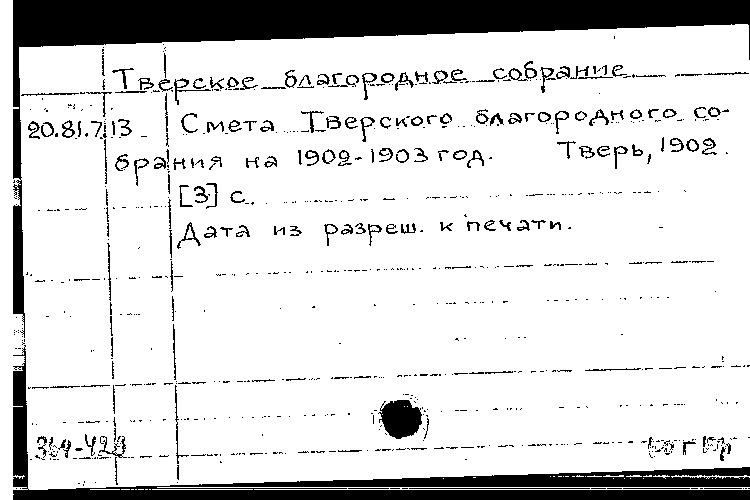 Тверское благородное собрание.
20.81.7.13 Смета Тверского благородного со-
брания на 1902-1903 год. Тверь, 1902.
[3] с.
Дата из разреш. к печати.